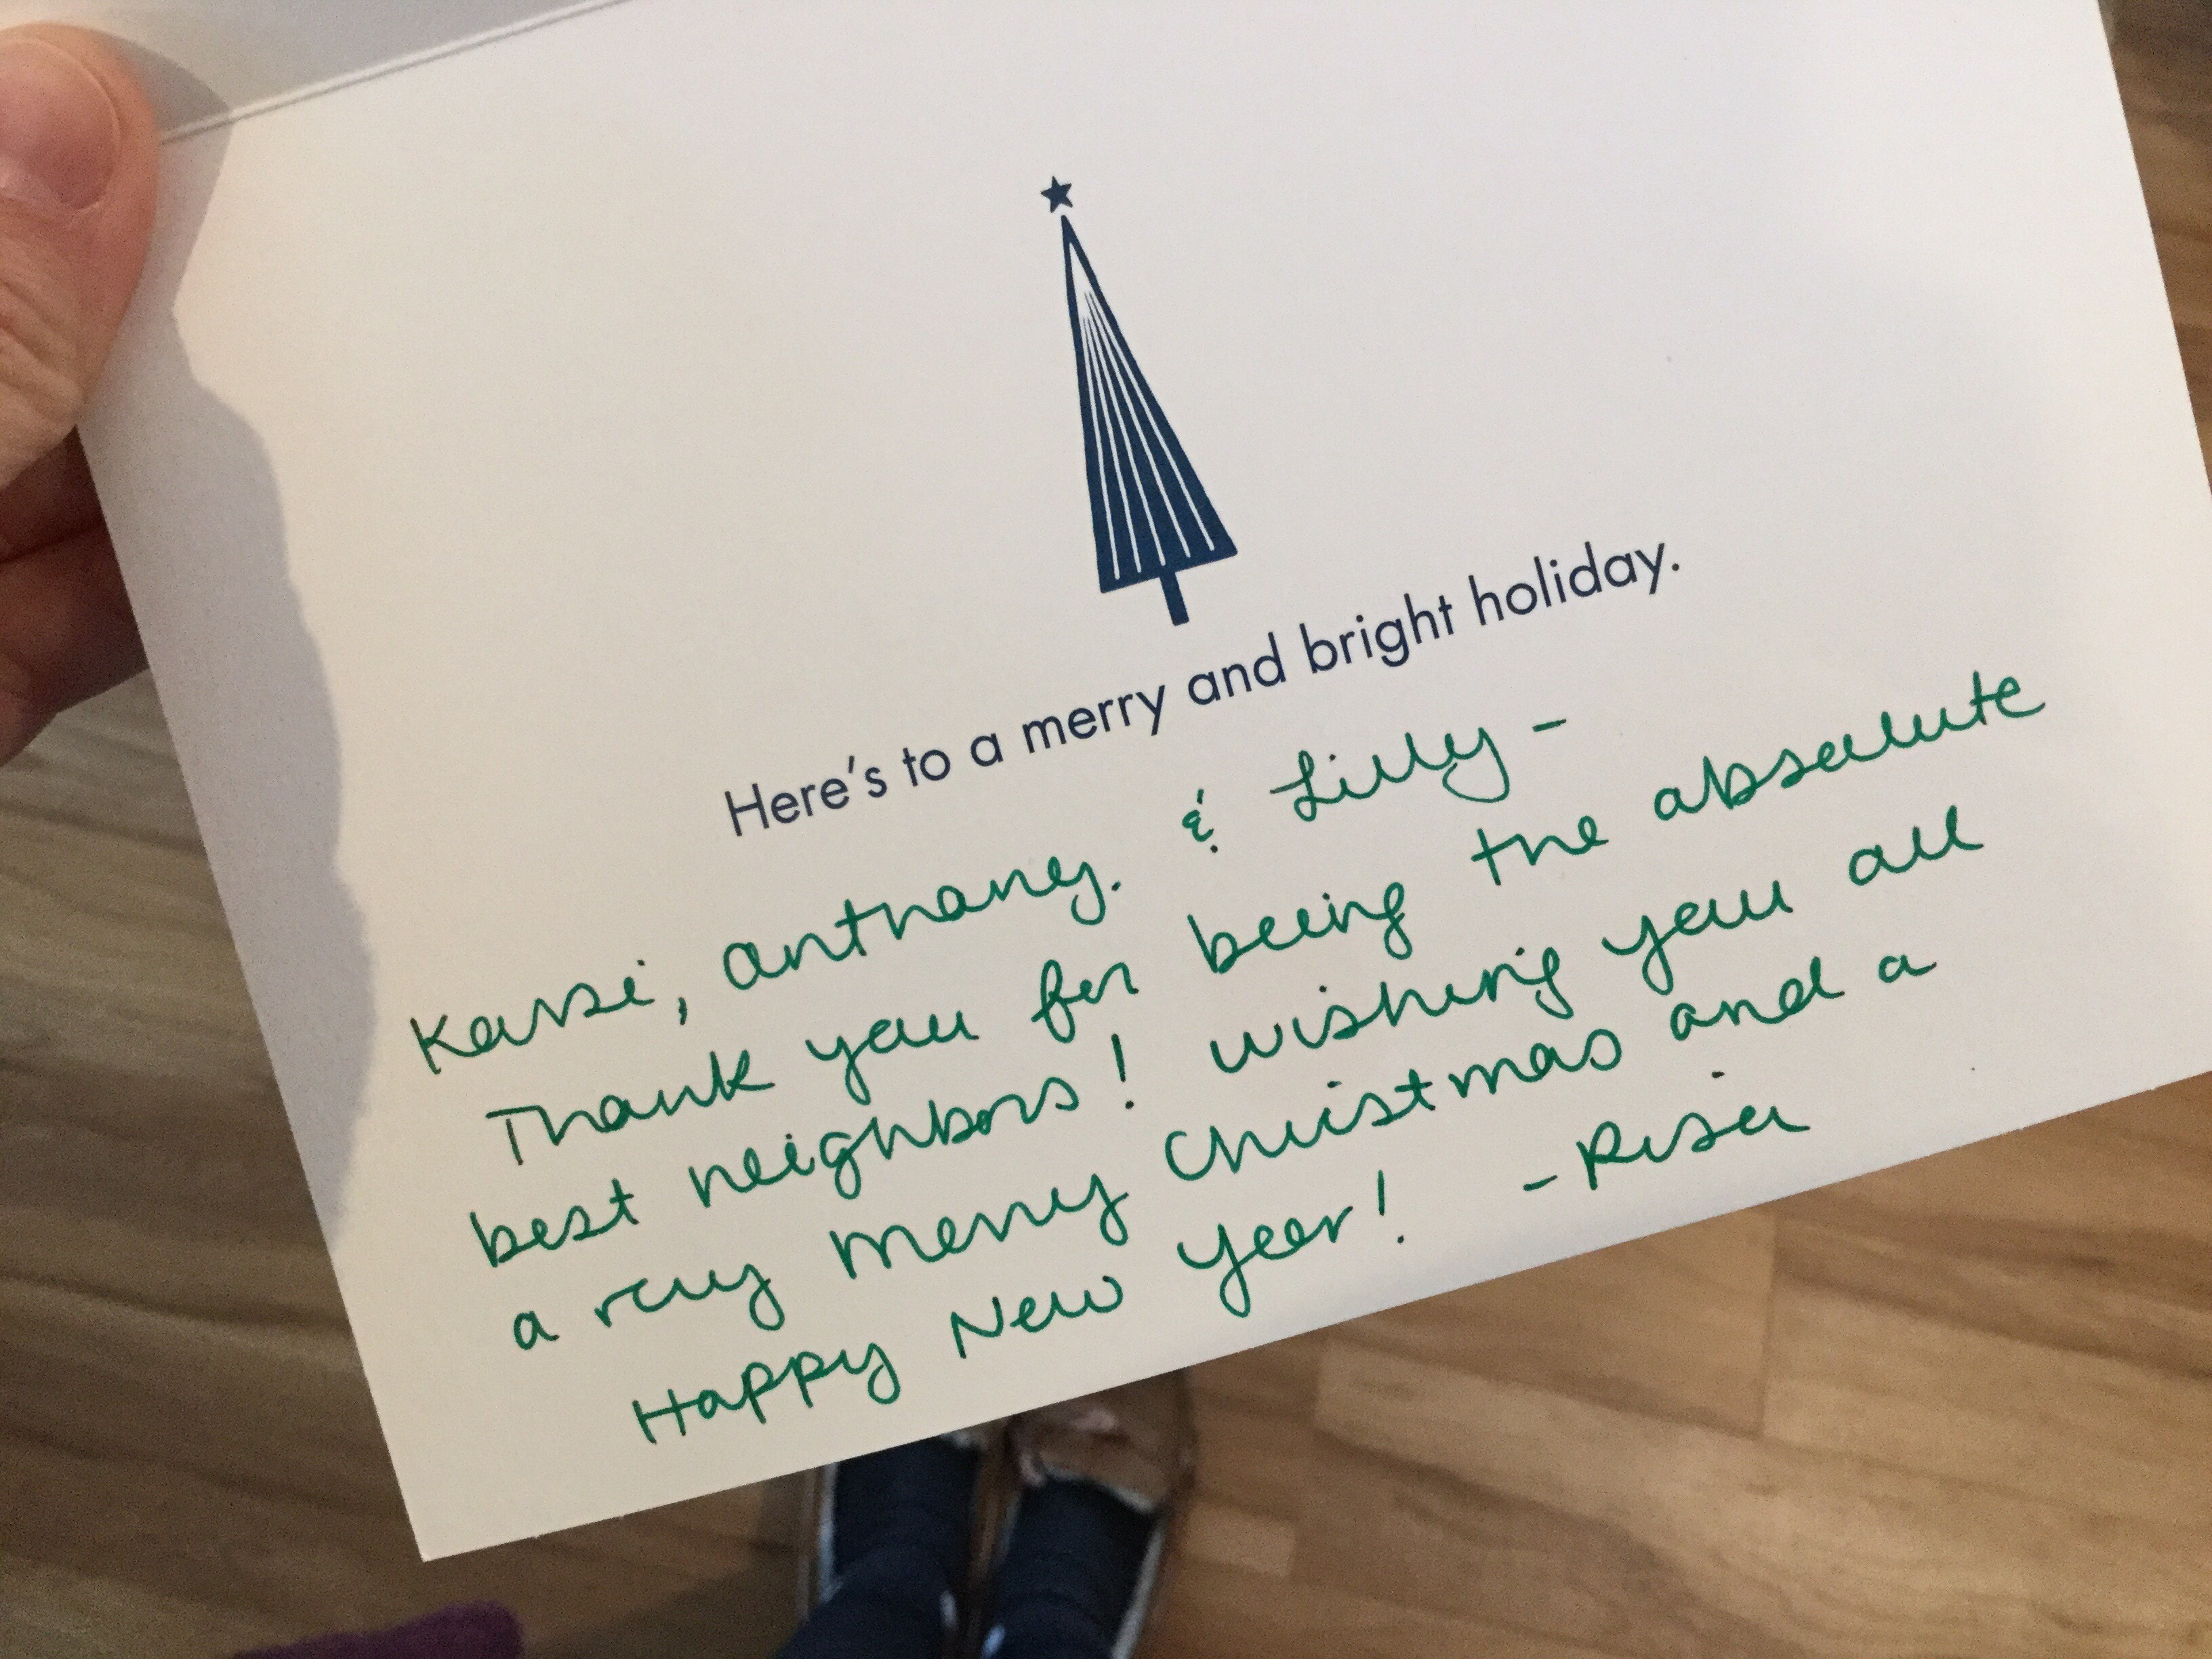 Here's to a merry and bright holiday.
Karsi, Anthony. & Lilly -
Thank you for being the absolute
best neighbors! Wishing you all
a very Merry Christmas and a
Happy New Year! - Risa